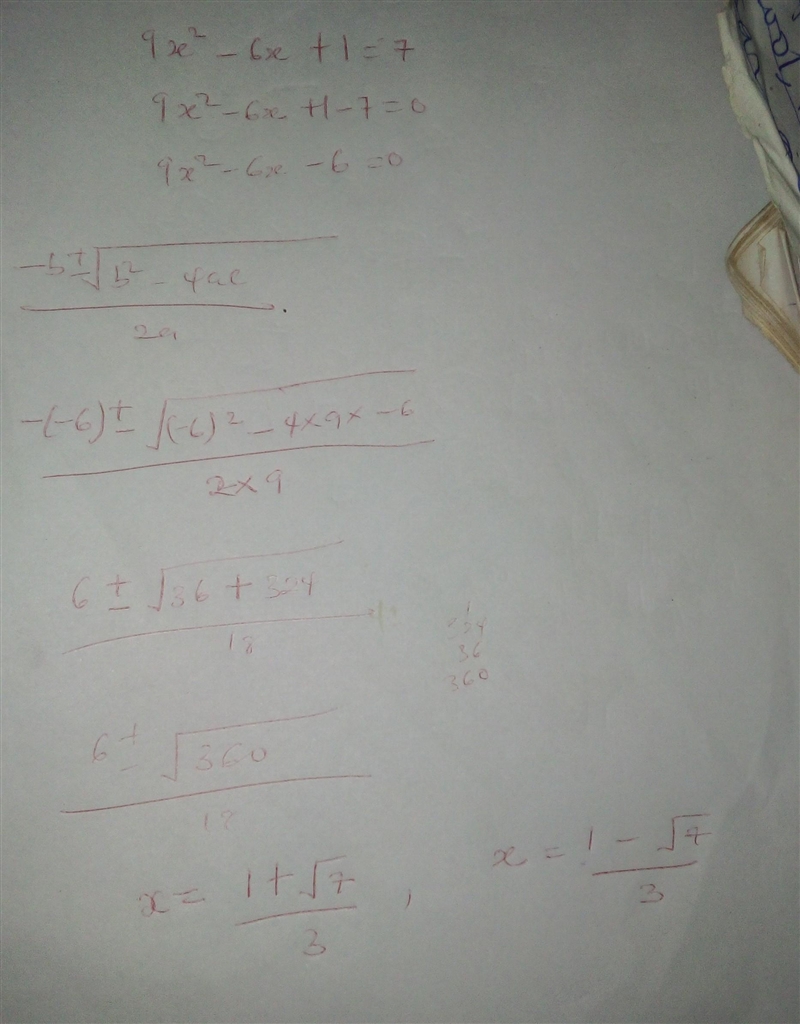 9x² - 6x + 1 = 7
9x² - 6x + 1 - 7 = 0
9x² - 6x - 6 = 0
-b ± √b² - 4ac
2a
-(-6) ± √(-6)² - 4 × 9 × -6
2 × 9
6 ± √36 + 324
18
36
360
6 ± √360
18
x = 1 + √7 / 3 , x = 1 - √7 / 3